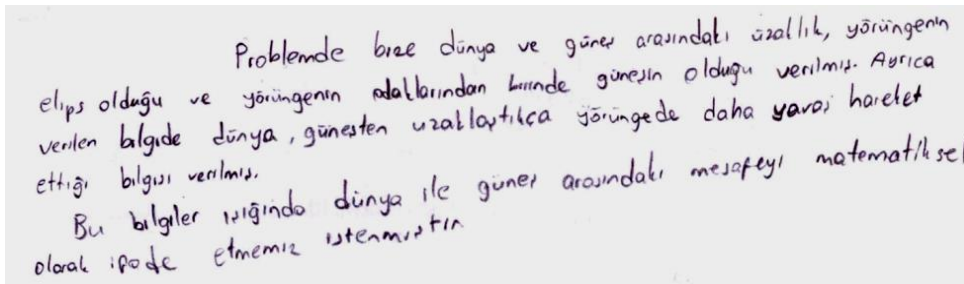 Problemde bize dünya ve güneş arasındaki uzallık, yörüngenin
elips olduğu ve yörüngenin odaklarından birinde güneşin olduğu verilmiş. Ayrıca
verilen bilgide dünya, güneşten uzaklaştıkça yörüngede daha yavaş hareket
ettiği bilgisi verilmiş.
Bu bilgiler ışığında dünya ile güneş arasındaki mesafeyi matematiksel
olarak ifade etmemiz istenmiştir